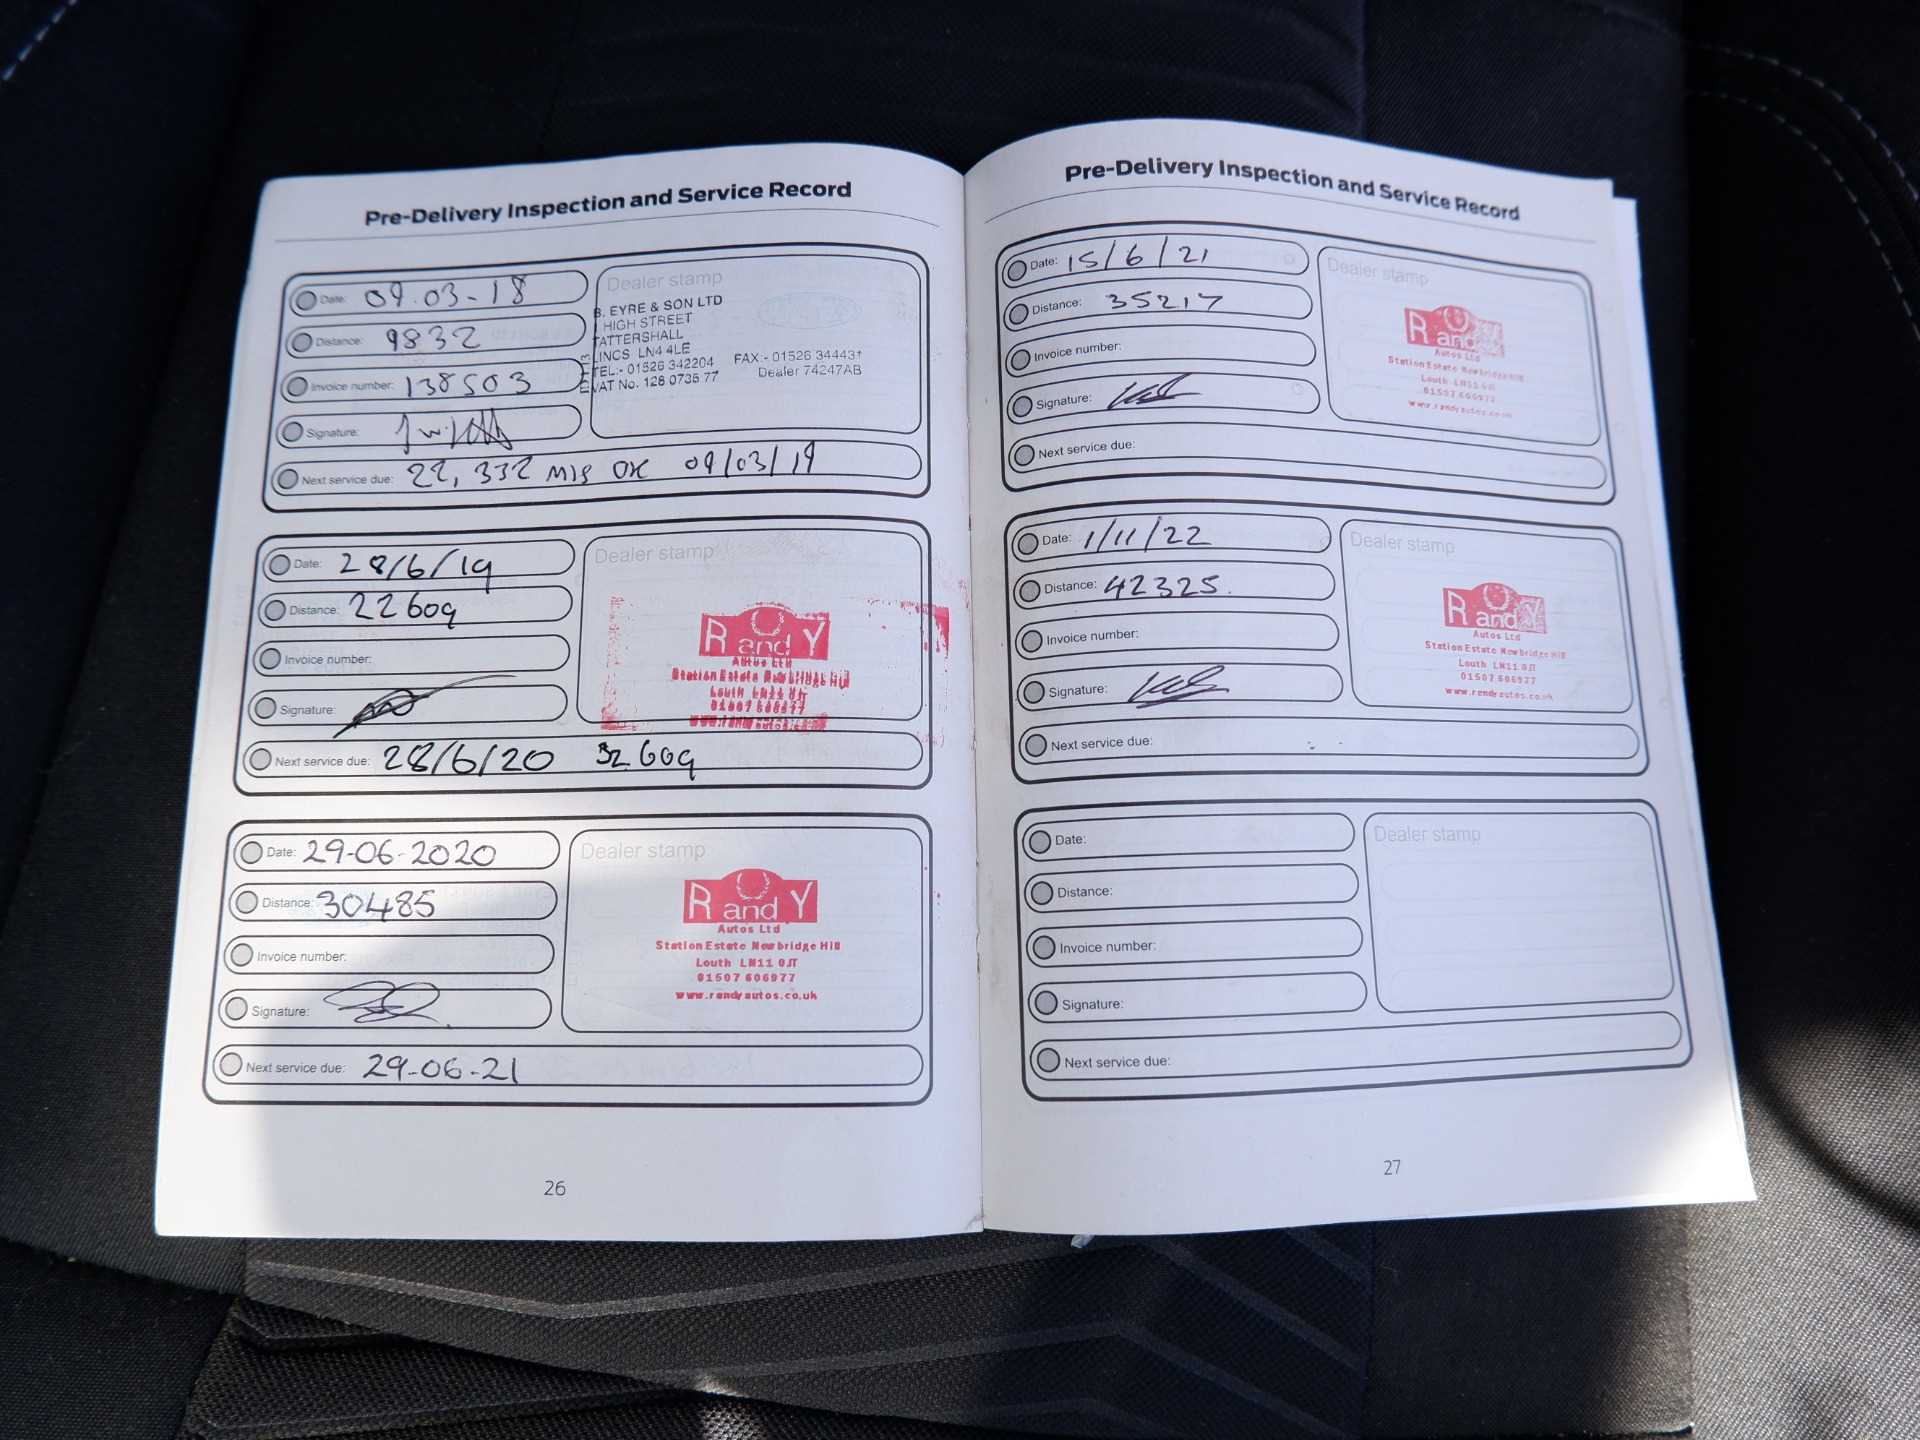 Pre-Delivery Inspection and Service Record
Date: 09.03-18
Distance: 9832
Invoice number: 138503
Signature:
Next service due: 22,332 MIS OR 09/03/19
Dealer stamp
B. EYRE & SON LTD
HIGH STREET
TATTERSHALL
LINCS LN4 4LE
TEL:- 01526 342204 FAX:- 01526 344431
VAT No. 128 0735 77 Dealer 74247AB
Date: 28/6/19
Distance: 22609
Invoice number:
Signature:
Next service due: 28/6/20 32609
Dealer stamp
R and Y
Autos Ltd
Station Estate Newbridge Hill
Louth LN11 0JT
01507 606977
www.randyautos.co.uk
Date: 29-06-2020
Distance: 30485
Invoice number:
Signature:
Next service due: 29-06-21
Dealer stamp
R and Y
Autos Ltd
Station Estate Newbridge Hill
Louth LN11 0JT
01507 606977
www.randyautos.co.uk
26
Pre-Delivery Inspection and Service Record
Date: 15/6/21
Distance: 35217
Invoice number:
Signature:
Next service due:
Dealer stamp
R and Y
Autos Ltd
Station Estate Newbridge Hill
Louth LN11 0JT
01507 606977
www.randyautos.co.uk
Date: 1/11/22
Distance: 42325.
Invoice number:
Signature:
Next service due:
Dealer stamp
R and Y
Autos Ltd
Station Estate Newbridge Hill
Louth LN11 0JT
01507 606977
www.randyautos.co.uk
Date:
Distance:
Invoice number:
Signature:
Next service due:
Dealer stamp
27